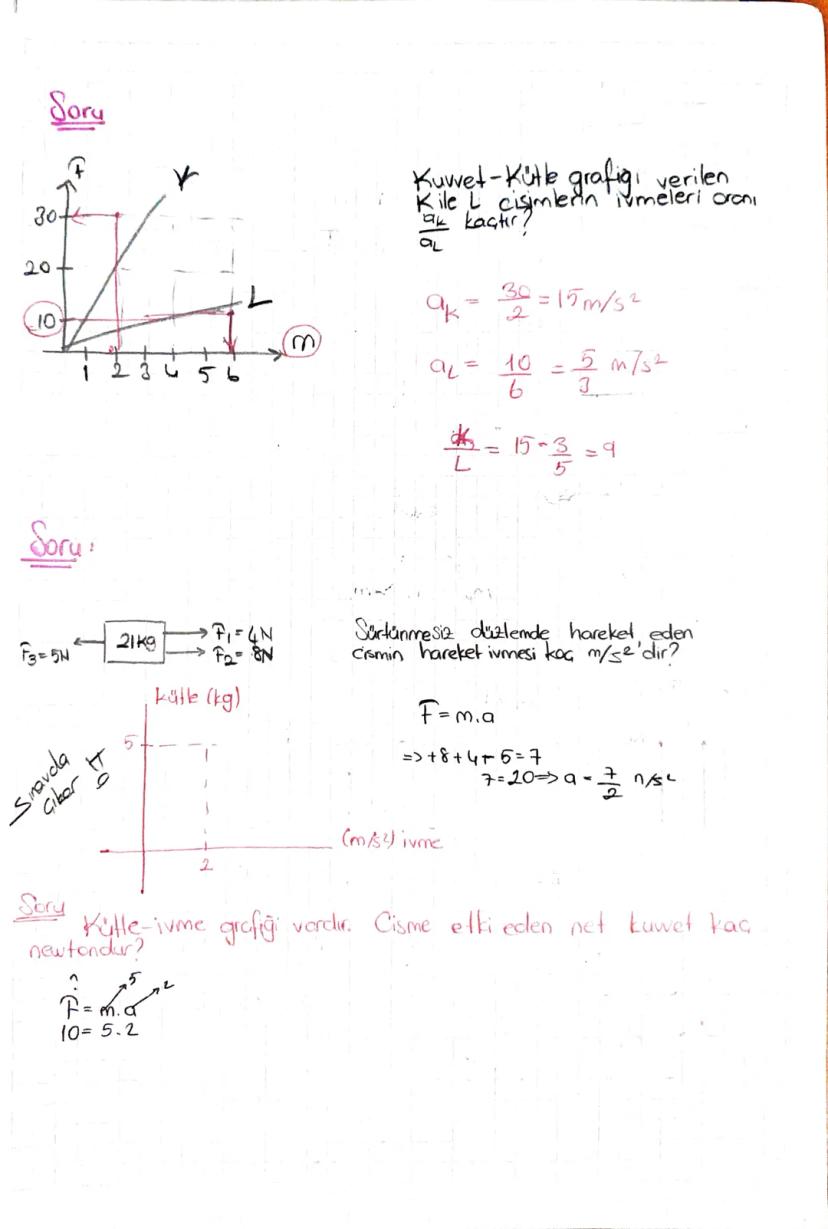 Soru
F
K
30
20
10
L
m
1 2 3 4 5 6
Kuvvet-Kütle grafiği verilen
K ile L cisimlerin ivmeleri oranı
aK/aL kaçtır?
aK = 30/2 = 15 m/s²
aL = 10/6 = 5/3 m/s²
K/L = 15 - 3/5 = 9
Soru:
F3=5N 21kg F1=4N
F2=8N
Sürtünmesiz düzlemde hareket eden
cismin hareket ivmesi kaç m/s²'dir?
F=m.a
=>+8+4-5=7
7=20=>a=7/2 m/s²
kütle (kg)
5
2
(m/s²) ivme
Sınavda
Çıkar !!
Soru Kütle-ivme grafiği vardır. Cisme etki eden net kuvvet kaç
newtondur?
? 5 2
F=m.a
10=5.2